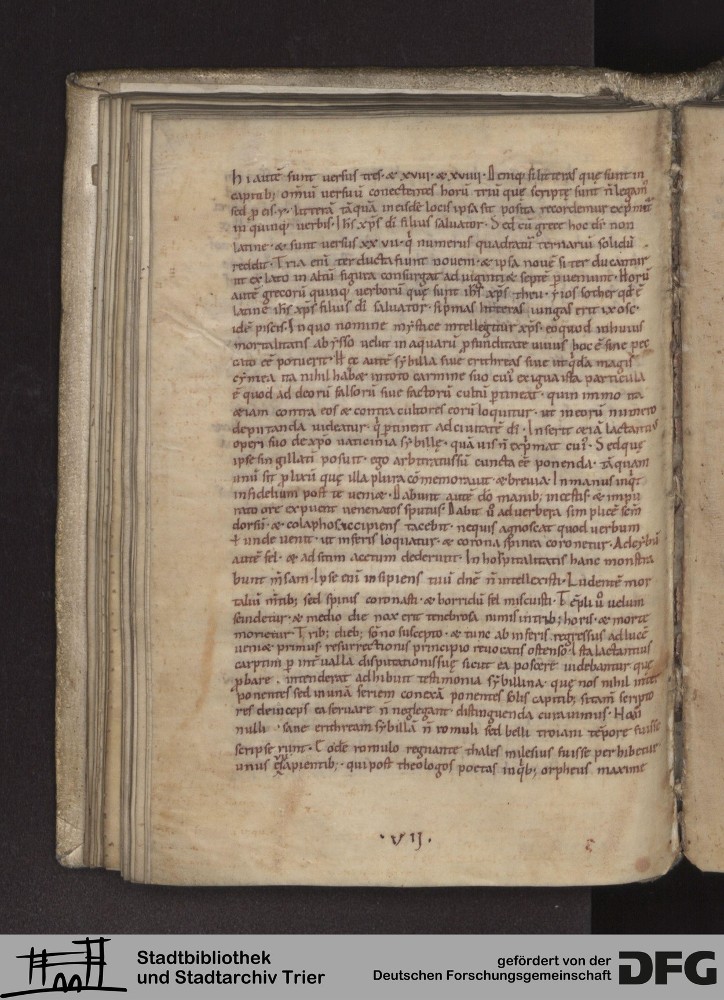 hi autē sunt versus tres· & xviii· & xviiii· Deniq; si litteras quę sunt in
capitib; omniū versuū conectentes horū triū quę scriptę sunt n̄ legam᷒
sed ꝓ eis ·y· litterā tāquā in eisdē locis ipsa sit posita recordemur exp̄mit᷑
in quinq; verbis· Ih̄s xp̄s dī filius saluator· Sed cū grece hoc dr̄ non
latine· & sunt versus xx vii· qͥ numerus quadratū ternariū solidū
reddit· Tria enī ter ducta fiunt novem· & ipsa novē si ter ducantur
ut ex lato in altū figura consurgat ad viginti & septē ꝑveniunt· Horū
autē grecorū quinq; verborū quę sunt ih̄s xp̄s theu· yios sother qd̄ ē
latine ih̄s xp̄s filius dī saluator· si p̄mas litteras iungas erit ixose·
idē piscis· In quo nomine mystice intellegitur xp̄s· eo quod in huius
mortalitatis abysso velut in aquarū ꝓfunditate vivus hoc ē sine pec
cato eē potuerit· Hęc autē sybilla sive erithrea sive ut qͥda magis
cymea ita nihil hab& in toto carmine suo cui᷒ exigua ista particula
ē quod ad deorū falsorū sive factorū cultū ꝑtineat· quin immo ita
&iam contra eos & contra cultores eorū loquitur· ut in eorū numero
deputanda videatur· qͥ ꝑtinent ad civitatē dī· Inserit &iā lactanti᷒
operi suo de xp̄o vaticinia sybillę· quā vis n̄ exp̄mat cui᷒· Sed quę
ipse singillatī posuit· ego arbitratus sū cuncta eē ponenda· tāquam
unū sit ꝓlixū quę illa plura cōmemoravit & brevia· In manus inqͥt
infidelium post te veni&· Dabunt autē dō manib; incestis & impu
rato ore expuent venenatos sputus· Dabit ū ad verbera simplicē sc̄m
dorsū· & colaphos accipiens tacebit· nequis agnoscat quod verbum
ł unde venit· ut inferis loquatur· & corona spinea coronetur· Ad cybū
autē fel· & ad sitim acetum dederunt· In hospitalitatis hanc monstra
bunt m̄sam· Ipse enī insipiens tuū dnē n̄ intellexisti· Ludentē mor
taliū m̄tib; sed spinis coronasti· & horridū fel miscuisti· Tēpli ū velum
scindetur· & medio die nox erit tenebrosa nimis in trib; horis· & morte
morietur· Trib; dieb; sōno suscepto· & tunc ab inferis regressus ad lucē
veni& primus· resurrectionis principio revocatis ostenso· Ista lactantius
carptim ꝑ int̄valla disputationis suę sicut ea poscere videbantur quę
ꝓbare intenderat adhibuit testimonia sybillina· quę nos nihil int̄
ponentes sed in unā seriem conexā ponentes solis capitib; si tam̄ scripto
res deinceps ea servare n̄ neglegant distinguenda curavimus· Non
nulli sane erithream sybillā n̄ romuli sed belli troiani tēpore fuisse
scripserunt· Eodē romulo regnante thales milesius fuisse perhibetur
unus ę sapientib;· qui post theologos poetas in qͥb; orpheus maxime
·VIJ·
Stadtbibliothek
und Stadtarchiv Trier
gefördert von der
Deutschen Forschungsgemeinschaft
DFG